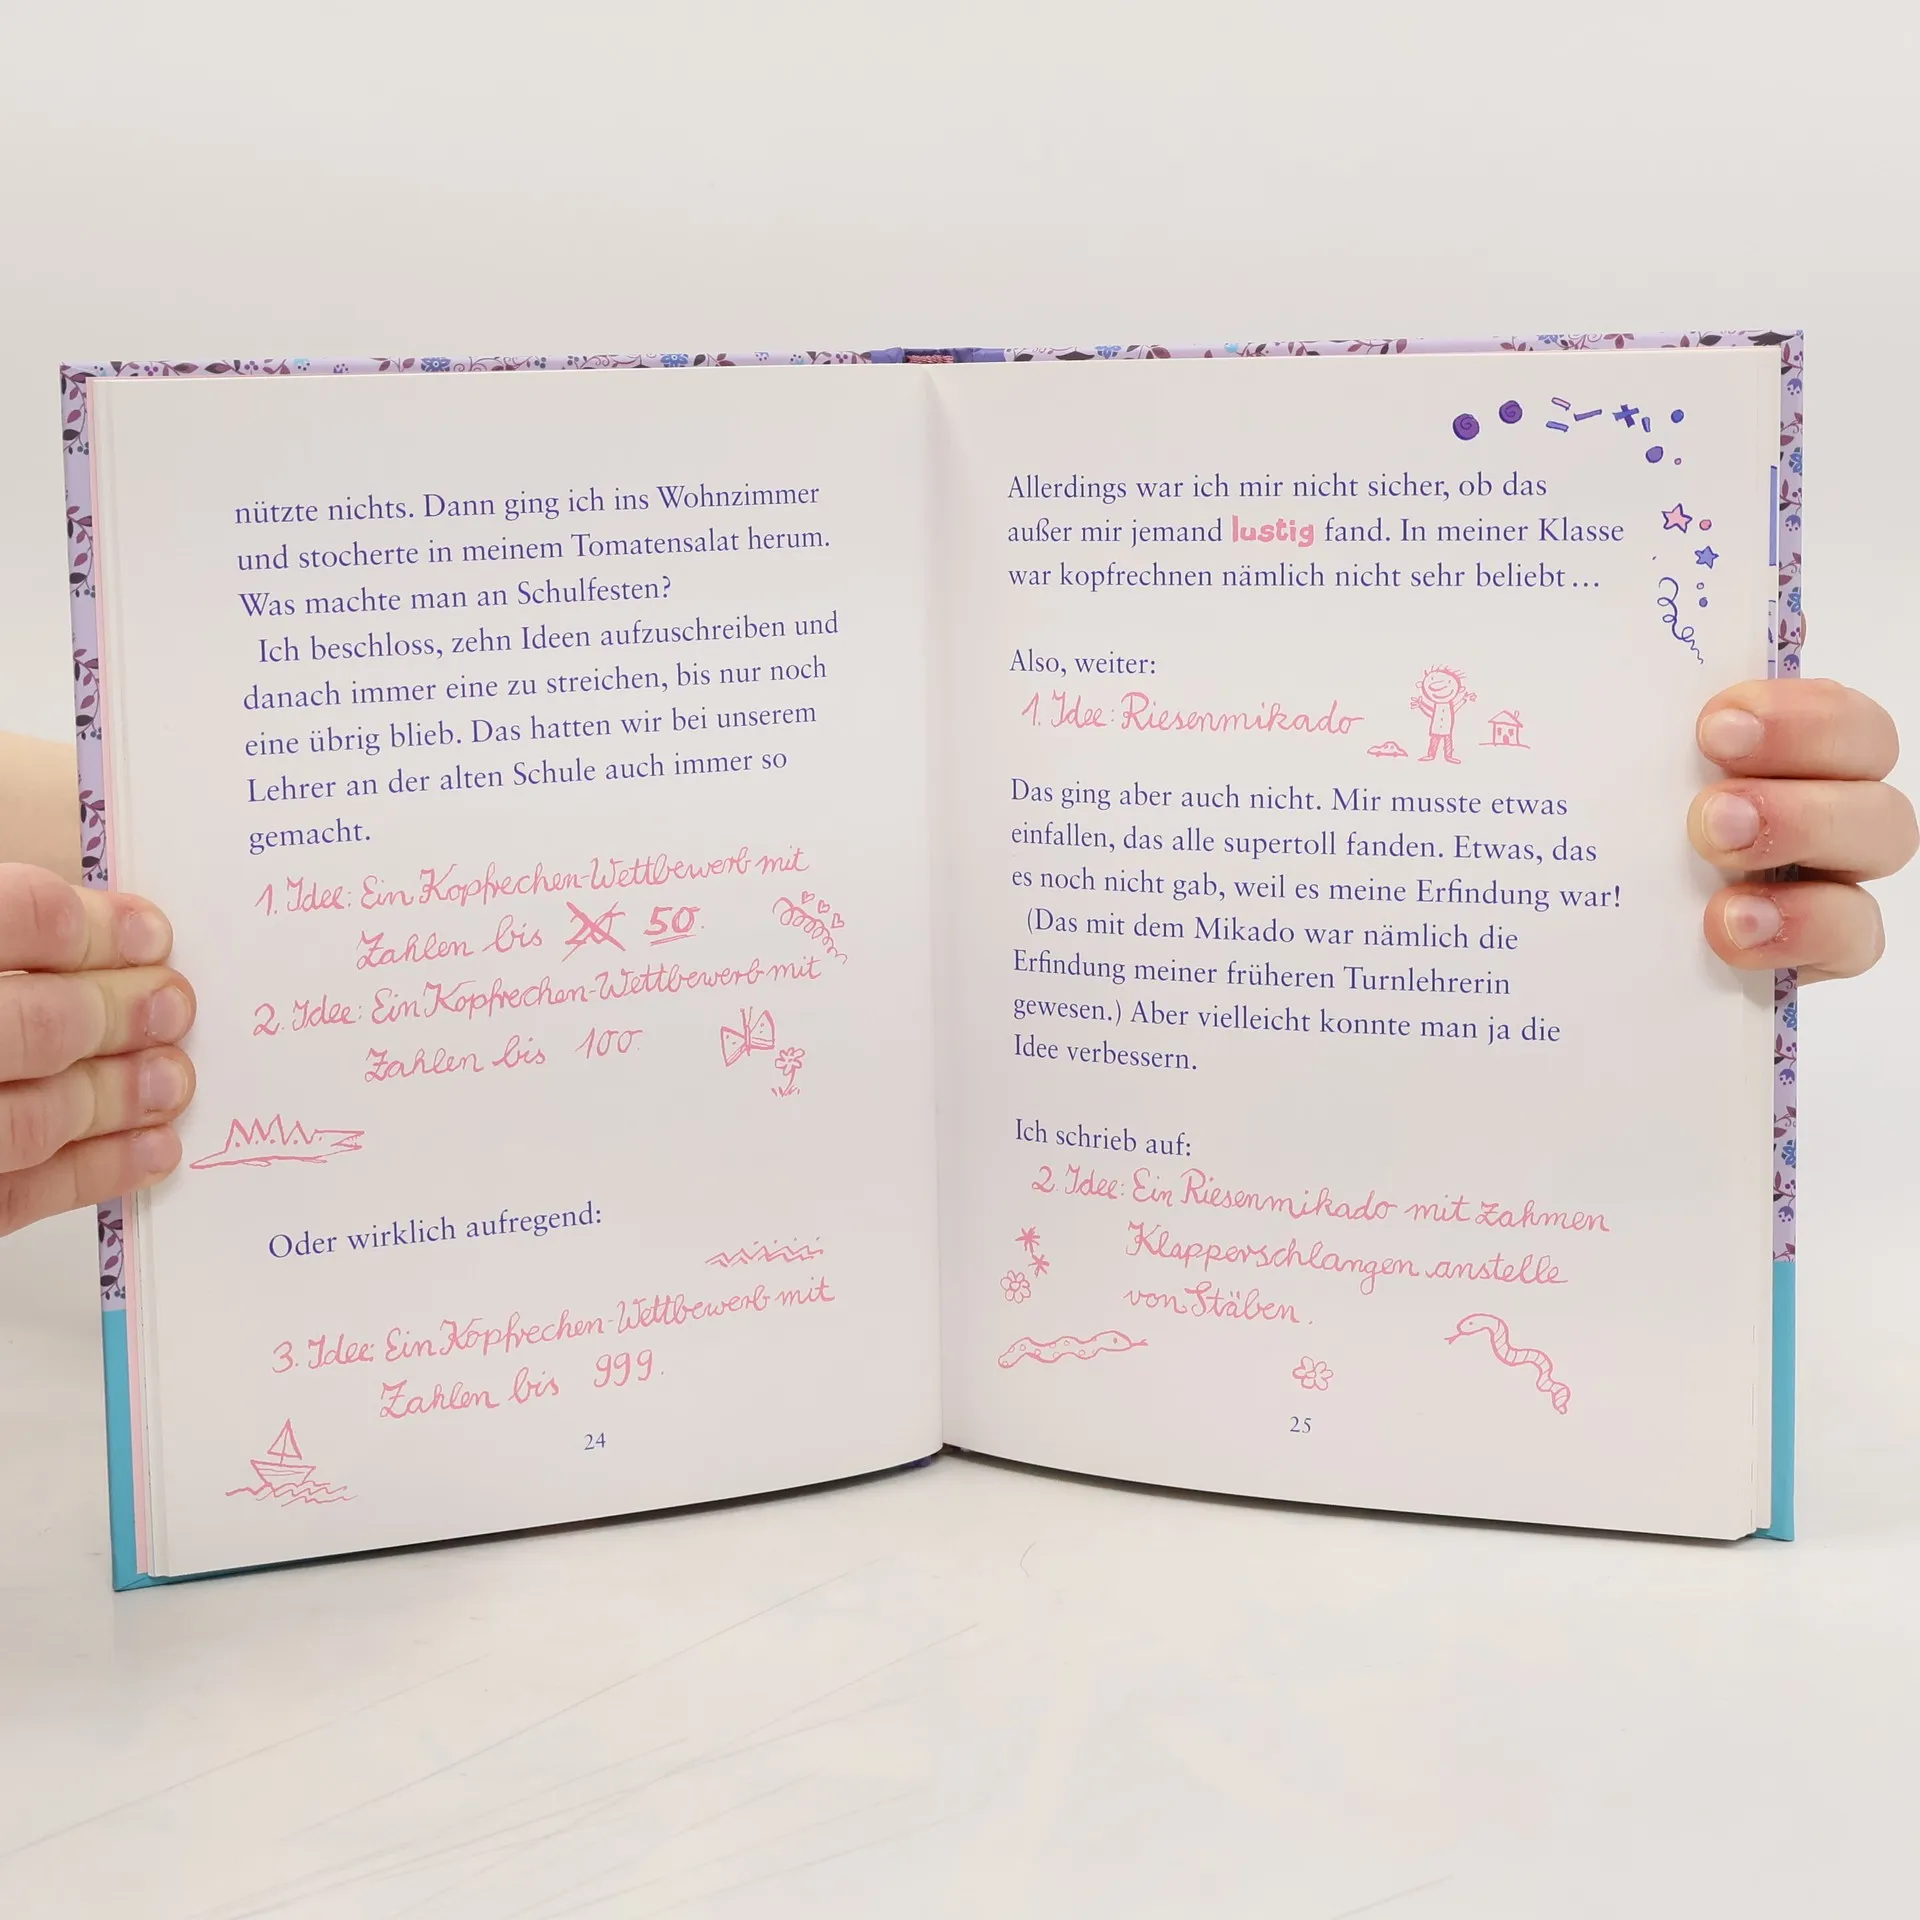 nützte nichts. Dann ging ich ins Wohnzimmer
und stocherte in meinem Tomatensalat herum.
Was machte man an Schulfesten?
Ich beschloss, zehn Ideen aufzuschreiben und
danach immer eine zu streichen, bis nur noch
eine übrig blieb. Das hatten wir bei unserem
Lehrer an der alten Schule auch immer so
gemacht.
1. Idee: Ein Kopfrechen-Wettbewerb mit
Zahlen bis 20 50.
2. Idee: Ein Kopfrechen-Wettbewerb mit
Zahlen bis 100.
Oder wirklich aufregend:
3. Idee: Ein Kopfrechen-Wettbewerb mit
Zahlen bis 999.
24
Allerdings war ich mir nicht sicher, ob das
außer mir jemand lustig fand. In meiner Klasse
war kopfrechnen nämlich nicht sehr beliebt ...
Also, weiter:
1. Idee: Riesenmikado
Das ging aber auch nicht. Mir musste etwas
einfallen, das alle supertoll fanden. Etwas, das
es noch nicht gab, weil es meine Erfindung war!
(Das mit dem Mikado war nämlich die
Erfindung meiner früheren Turnlehrerin
gewesen.) Aber vielleicht konnte man ja die
Idee verbessern.
Ich schrieb auf:
2. Idee: Ein Riesenmikado mit zahmen
Klapperschlangen anstelle
von Stäben.
25